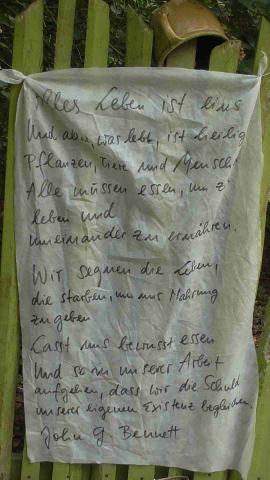 Alles Leben ist eins
Und alles, was lebt, ist heilig
Pflanzen, Tiere und Mensch
Alle müssen essen, um z
leben und
uneinander zu ernähren.
Wir segnen die Leben,
die starben, um uns Nahrung
zu geben
Lasst uns bewusst essen
Und so in unserer Arbeit
aufgehen, dass wir die Schuld
unserer eigenen Existenz begleichen.
John G Bennett